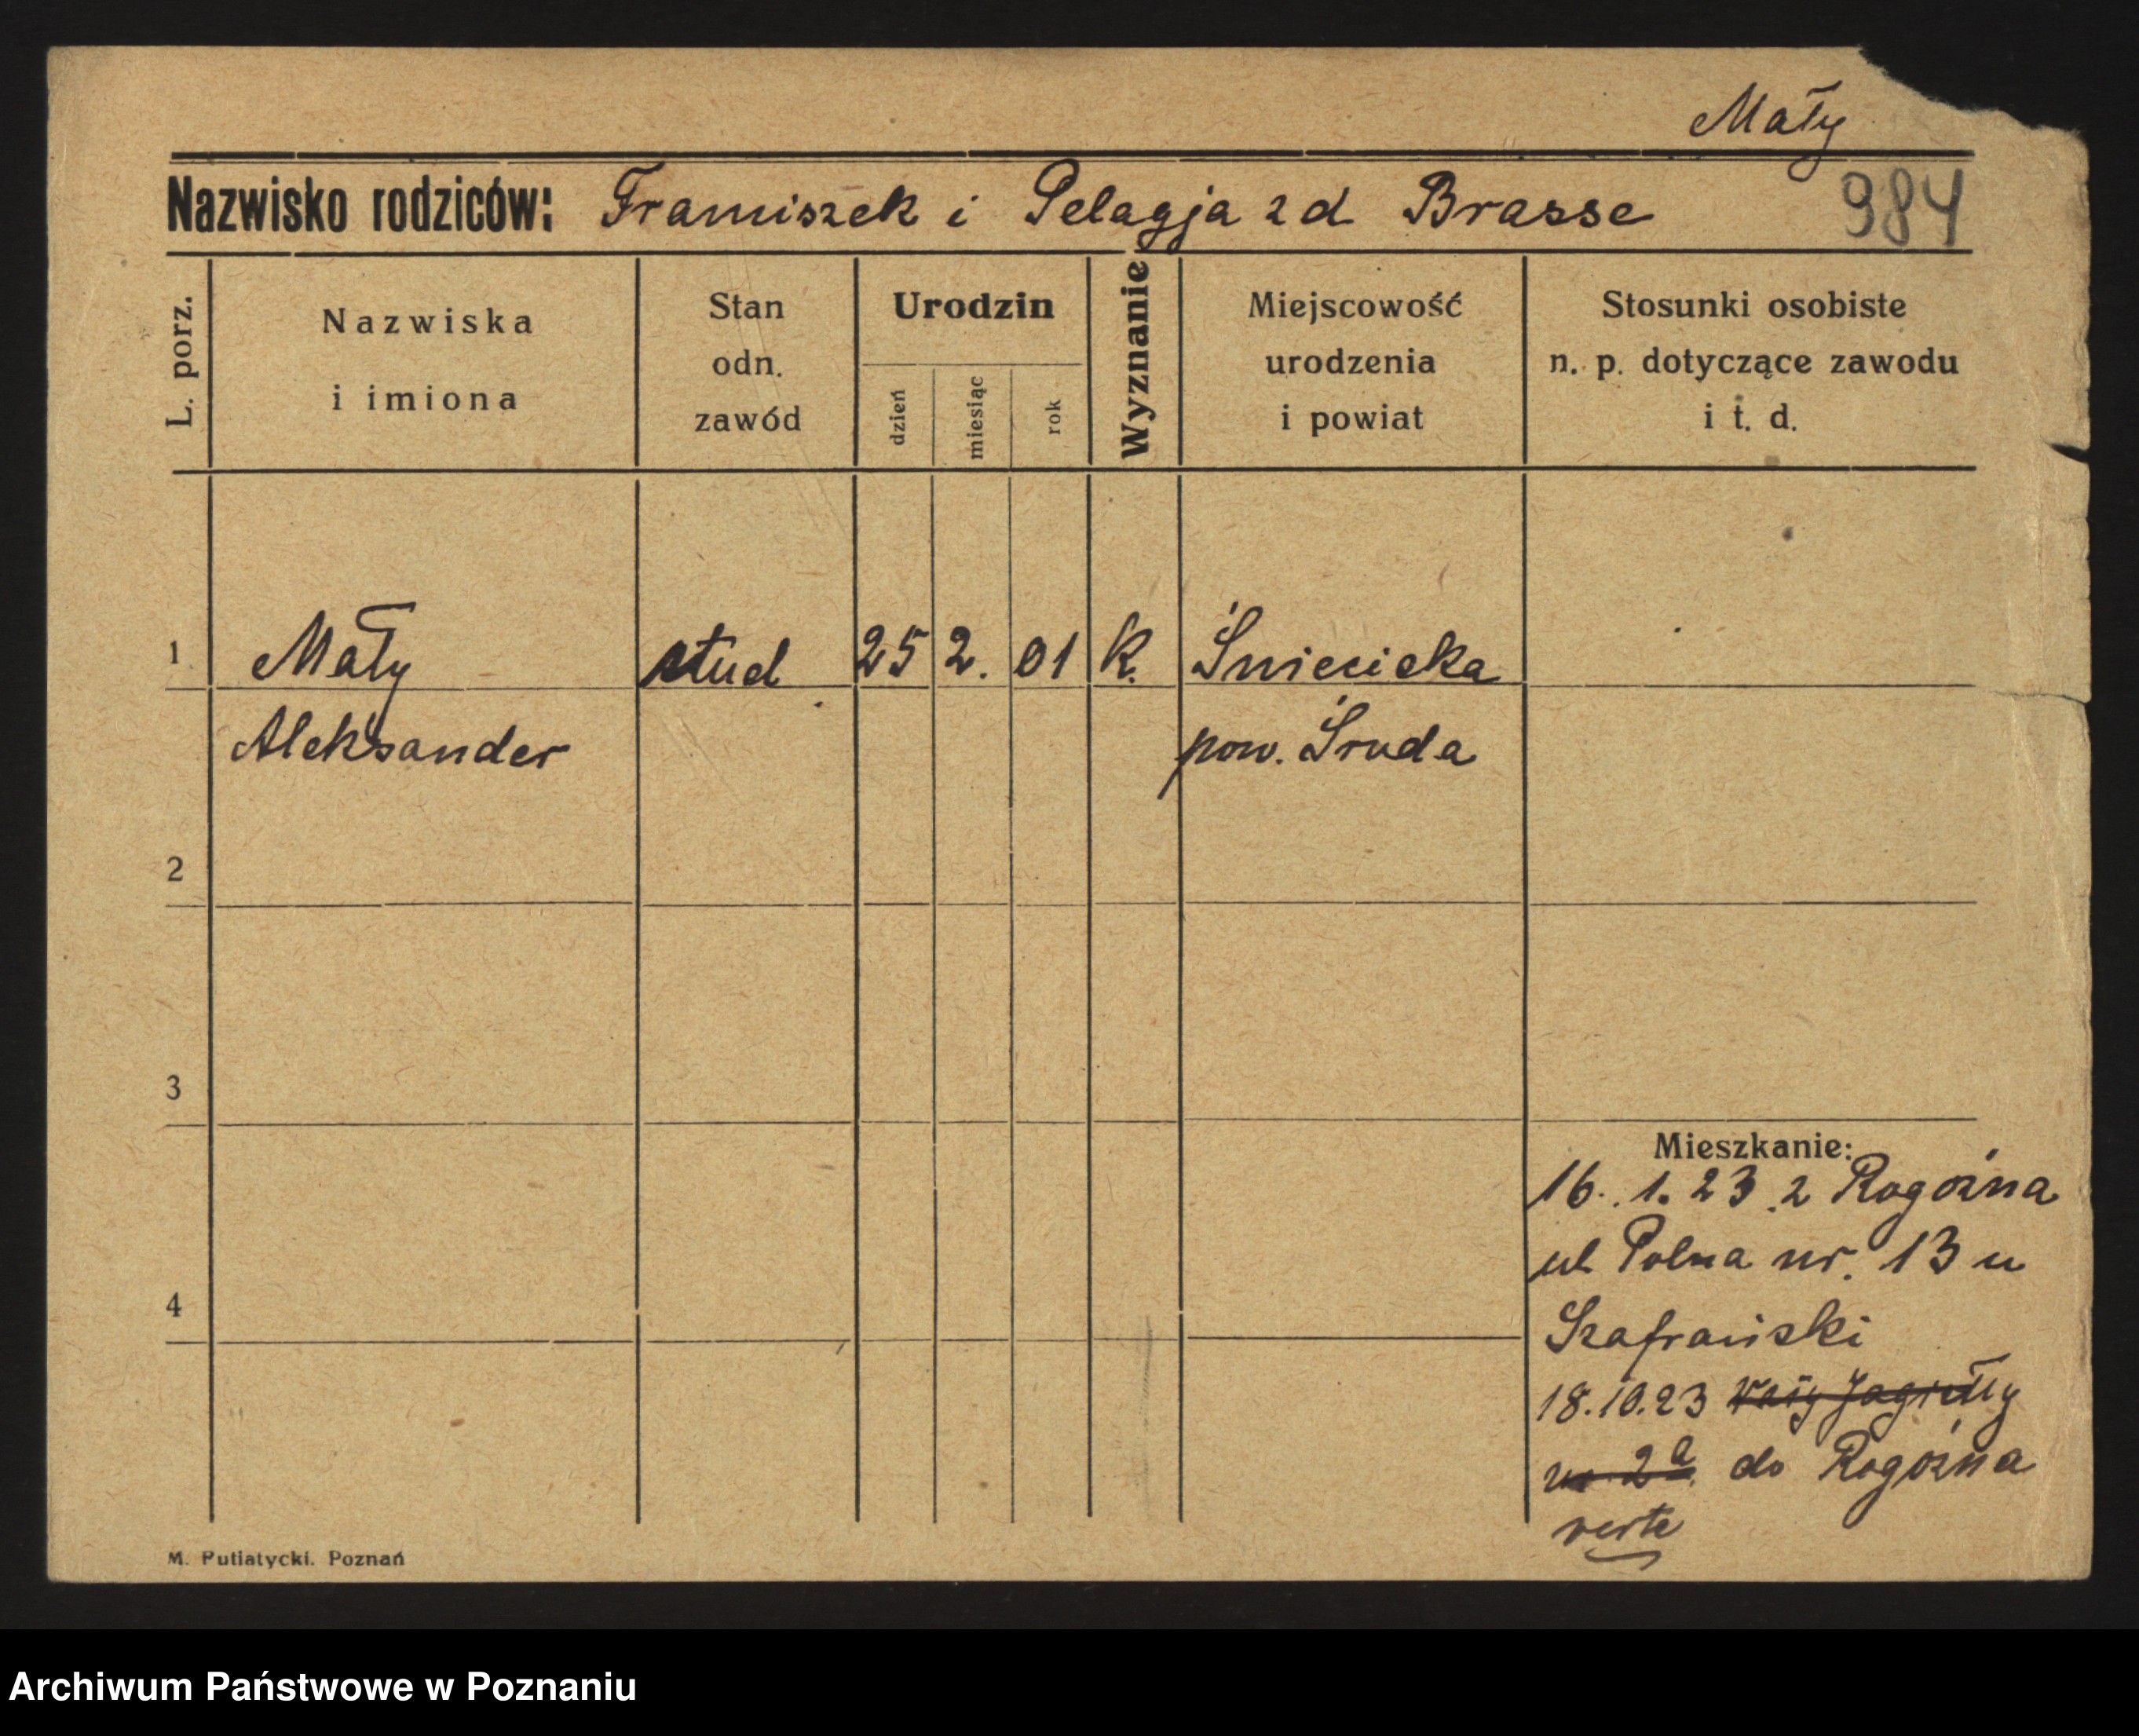 Mały
Nazwisko rodziców: Franciszek i Pelagja z d Brasse
984
L. porz.
Nazwiska
i imiona
Stan
odn.
zawód
Urodzin
dzień
miesiąc
rok
Wyznanie
Miejscowość
urodzenia
i powiat
Stosunki osobiste
n. p. dotyczące zawodu
i t. d.
1 Mały stud 25 2. 01 k. Śniecicka
Aleksander pow. Środa
2
3
4
Mieszkanie:
16. 1. 23 z Rogoźna
ul Polna nr. 13 u
Szafrański
18.10.23 Wały Jagiełły
nr 2a do Rogoźna
verte
M. Putiatycki. Poznań
Archiwum Państwowe w Poznaniu